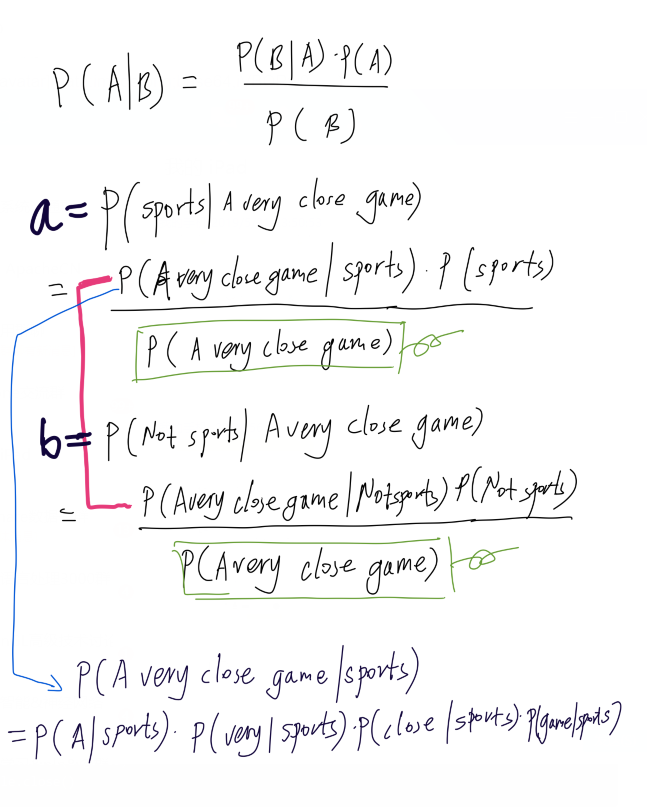 P(A|B) = P(B|A)·P(A)
P(B)
a= P(sports| A very close game)
= P(A very close game | sports) · P(sports)
P( A very close game)
b= P(Not sports| A very close game)
= P(A very close game | Not sports) P(Not sports)
P(A very close game)
P(A very close game |sports)
=P(A|sports)· P(very|sports)·P(close |sports)·P(game|sports)